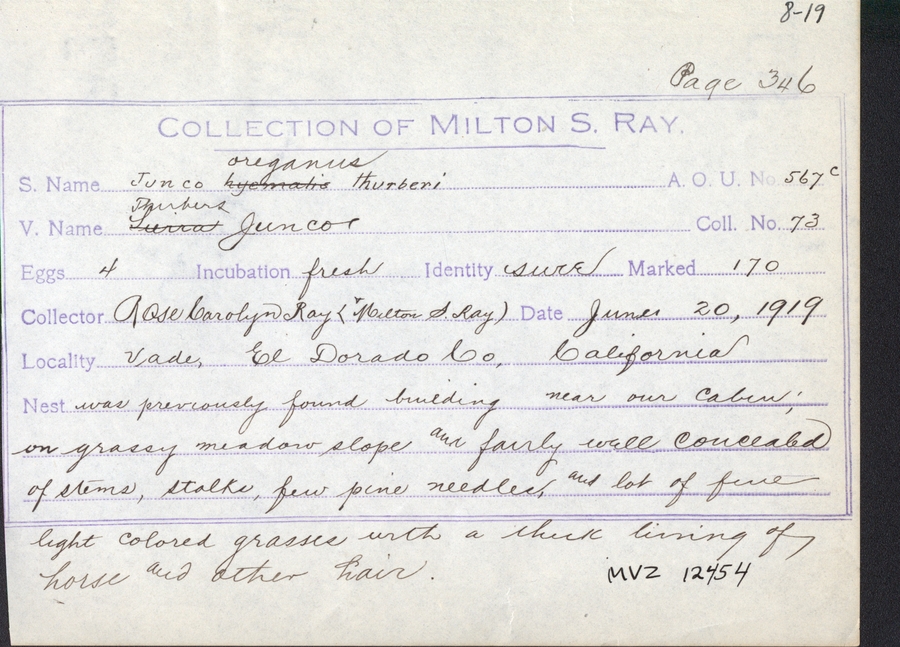 8-19
Page 346
COLLECTION OF MILTON S. RAY.
oreganus
S. Name Junco hyemalis thurberi A. O. U. No 567c
Thurbers
V. Name Sierra Junco Coll. No. 73
Eggs 4 Incubation fresh Identity sure Marked 170
Collector Rose Carolyn Ray (& Milton S. Ray) Date June 20, 1919
Locality Vade, El Dorado Co, California
Nest was previously found building near our cabin;
on grassy meadow slope and fairly well concealed
of stems, stalks, few pine needles, and lot of fine
light colored grasses with a thick lining of
horse and other hair.
MVZ 12454